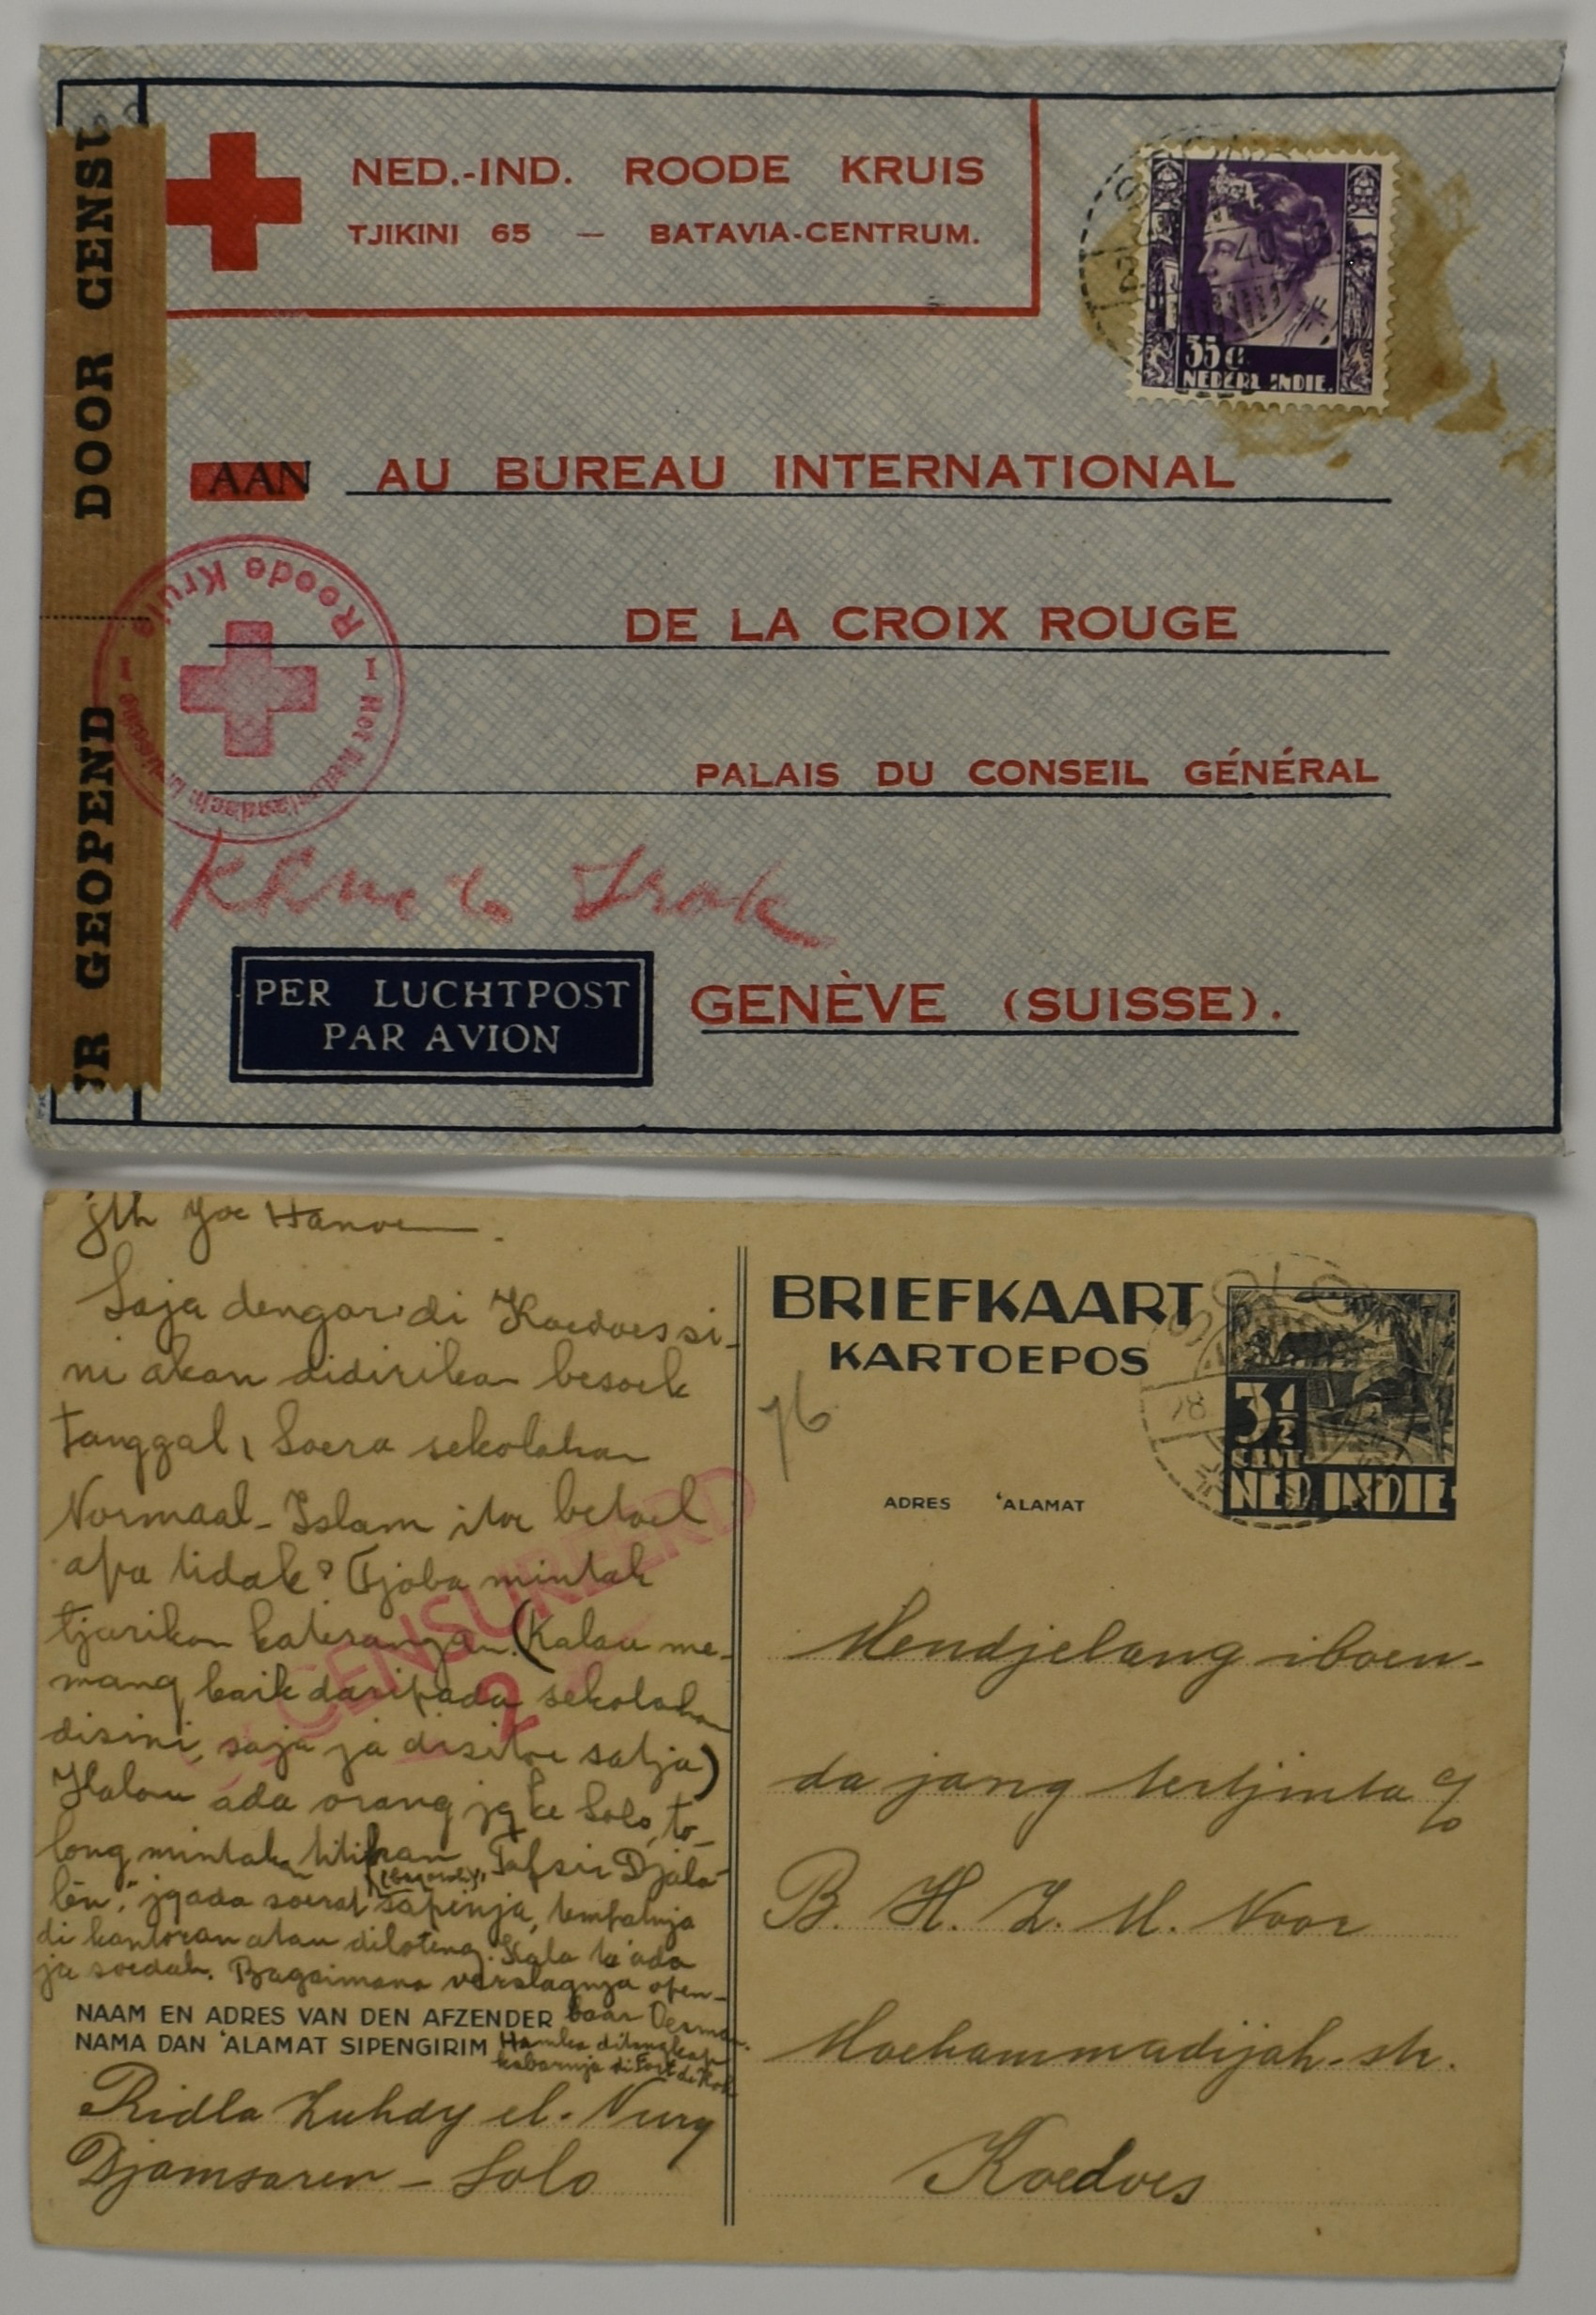 DOOR CENSU
UR GEOPEND
NED.-IND. ROODE KRUIS
TJIKINI 65 — BATAVIA-CENTRUM.
40
35 C.
NEDERL. INDIE.
AAN AU BUREAU INTERNATIONAL
DE LA CROIX ROUGE
PALAIS DU CONSEIL GÉNÉRAL
Roode Kruis
Het Nederlandsch
Irak
PER LUCHTPOST
PAR AVION
GENÈVE (SUISSE).
jth Joe Hanoe
Saja dengar di Koedoes si-
ni akan didirikan besoek
tanggal 1 Soera sekolahan
Normaal-Islam itoe betoel
apa tidak? Tjoba mintak
tjarikan katerangan. (Kalau me-
mang baik daripada sekolahan
disini, saja ja disitoe satja)
Kalau ada orang jg ke Solo, to-
long mintak titipkan "Tafsir Djala-
lên", jg ada soerat sapinja, tempatnja
di kantoran atau diloteng. Kala ta' ada
ja soedah. Bagaimana verslagnja open-
baar Oesman.
Hamka ditangkap
kabarnja di Fort de Kok
CENSUREERD
2
NAAM EN ADRES VAN DEN AFZENDER
NAMA DAN 'ALAMAT SIPENGIRIM
Ridla Zuhdy el-Nury
Djamsaren - Solo
BRIEFKAART
KARTOEPOS
SOLO
28
3½
CENT
NED. INDIE
ADRES 'ALAMAT
Mendjelang iboen-
da jang tertjinta c/o
B. H. Z. M. Noor
Moehammadijah-str.
Koedoes